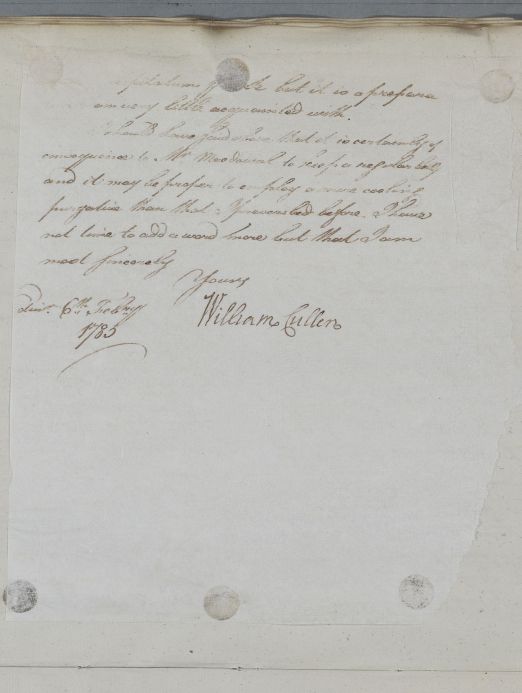 but it is a prepara
am very little acquainted with.
I should have said above that it is certainly of
consequence to Mr Macdowal to keep a regular belly
and it may be proper to employ a more cooling
purgative than that I prescribed before. I have
not time to add a word more but that I am
most sincerely
Yours
William Cullen
Edinr. 6th. Febry
1783